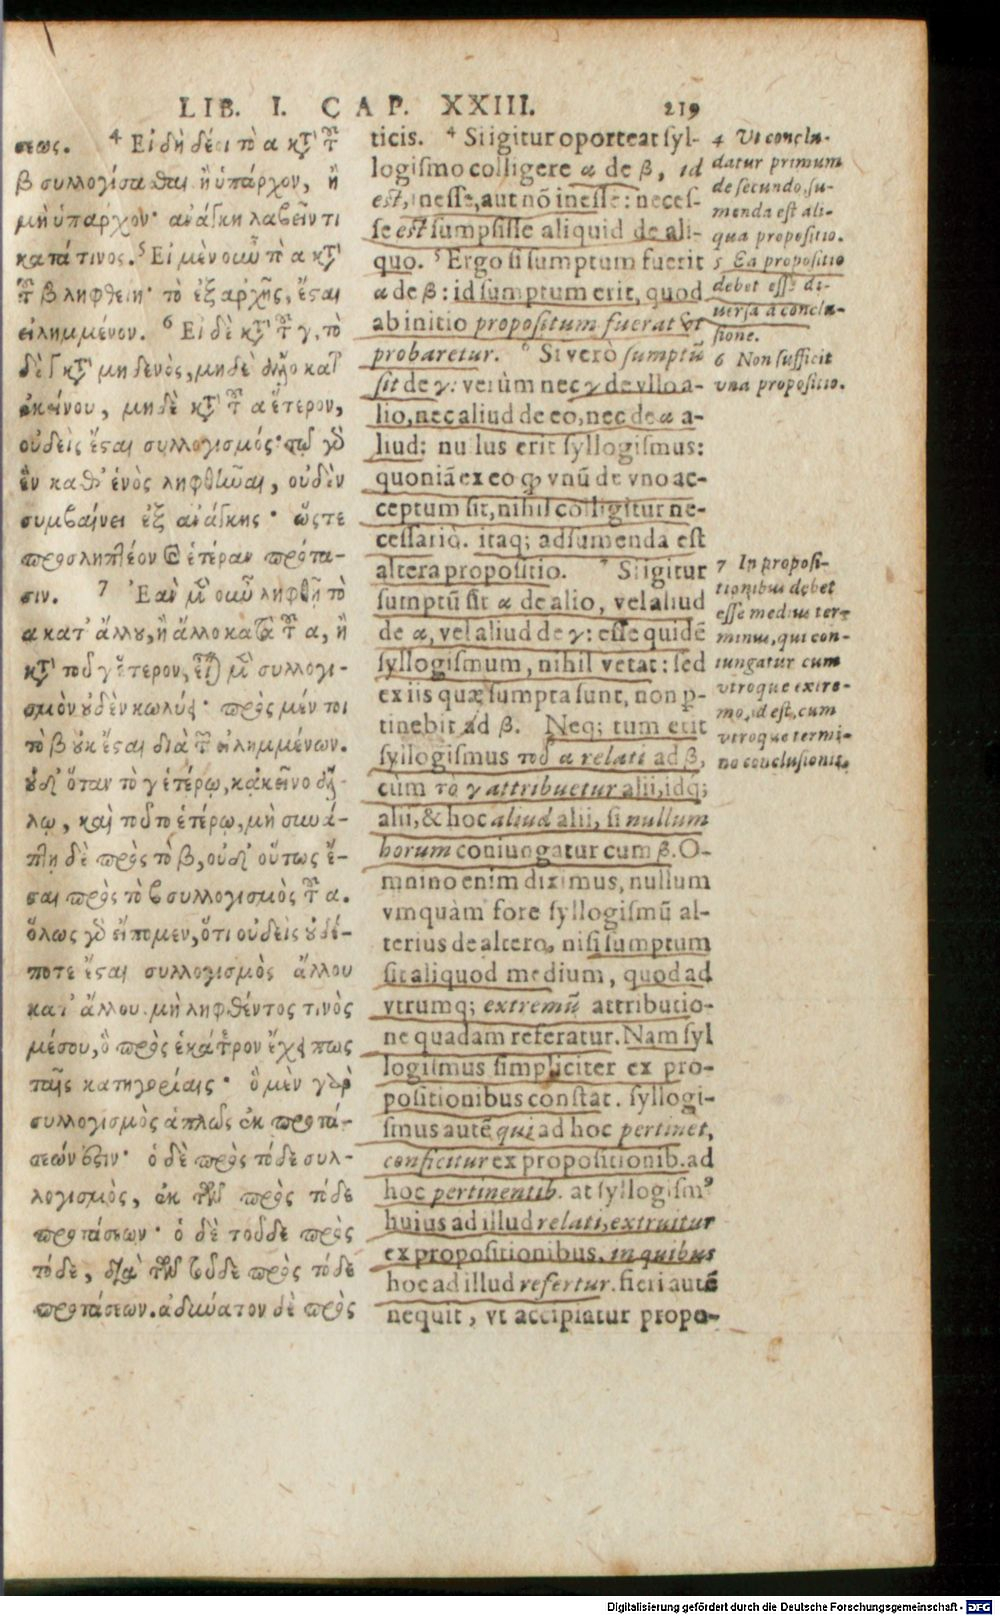 LIB. I. CAP. XXIII. 219
σεως. 4 Εἰ δὴ δέοι τὸ α κτ͂ τ͂
β συλλογίσασθαι ἢ ὑπάρχον, ἢ
μὴ ὑπάρχον· ἀνάγκη λαβεῖν τι
κατά τινος. 5 Εἰ μὲν οὖν τὸ α κτ͂
τ͂ β ληφθείη· τὸ ἐξ ἀρχῆς, ἔσται
εἰλημμένον. 6 Εἰ δὲ κτ͂ τ͂ γ, τὸ
δὲ γ κτ͂ μηδενὸς, μηδὲ ἄλλο κατ᾽
ἐκείνου, μηδὲ κτ͂ τ͂ α ἕτερον,
οὐδεὶς ἔσται συλλογισμός· τῷ γδ
ἓν καθ᾽ ἑνὸς ληφθῆναι, οὐδὲν
συμβαίνει ἐξ ἀνάγκης· ὥςτε
προσληπτέον καὶ ἑτέραν πρότα-
σιν. 7 Ἐὰν μ̂ οὖν ληφθῇ τὸ
α κατ᾽ ἄλλου, ἢ ἄλλο κατὰ τ͂ α, ἢ
κτ͂ τοῦ γ ἕτερον, εἶναι μ̂ συλλογι-
σμὸν οὐδὲν κωλύει· πρὸς μέν τοι
τὸ β οὐκ ἔσται διὰ τ͂ εἰλημμένων.
οὐδ᾽ ὅταν τὸ γ ἑτέρῳ, κἀκεῖνο ἄλ-
λῳ, καὶ τοῦτο ἑτέρῳ, μὴ συνά-
πτῃ δὲ πρὸς τὸ β, οὐδ᾽ οὕτως ἔ-
σται πρὸς τὸ β συλλογισμὸς τ͂ α.
ὅλως γδ εἴπομεν, ὅτι οὐδεὶς οὐδέ-
ποτε ἔσται συλλογισμὸς ἄλλου
κατ᾽ ἄλλου μὴ ληφθέντος τινὸς
μέσου, ὃ πρὸς ἑκάτερον ἔχει πως
ταῖς κατηγορίαις· ὁ μὲν γὰρ
συλλογισμὸς ἁπλῶς ἐκ προτά-
σεών ἐστιν· ὁ δὲ πρὸς τόδε συλ-
λογισμὸς, ἐκ τῶν πρὸς τόδε
προτάσεων· ὁ δὲ τοῦδε πρὸς
τόδε, διὰ τῶν τοῦδε πρὸς τόδε
προτάσεων. ἀδύνατον δὲ πρὸς
ticis. 4 Si igitur oporteat syl-
logismo colligere α de β, id
est, inesse, aut nō inesse: neces-
se est sumpsisse aliquid de ali-
quo. 5 Ergo si sumptum fuerit
α de β: id sumptum erit, quod
ab initio propositum fuerat vt
probaretur. 6 Si verò sumptū
sit de γ: verùm nec γ de vllo a-
lio, nec aliud de eo, nec de α a-
liud: nullus erit syllogismus:
quoniā ex eo qp vnū de vno ac-
ceptum sit, nihil colligitur ne-
cessariò. itaq; adsumenda est
altera propositio. 7 Si igitur
sumptū sit α de alio, vel aliud
de α, vel aliud de γ: esse quidē
syllogismum, nihil vetat: sed
ex iis quæ sumpta sunt, non p-
tinebit ad β. Neq; tum erit
syllogismus τοῦ α relati ad β,
cùm τὸ γ attribuetur alii, idq;
alii, & hoc aliud alii, si nullum
horum coniungatur cum β. O-
mnino enim diximus, nullum
vmquàm fore syllogismū al-
terius de altero, nisi sumptum
sit aliquod medium, quod ad
vtrumq; extremū attributio-
ne quadam referatur. Nam syl
logismus simpliciter ex pro-
positionibus constat. syllogi-
smus autē qui ad hoc pertinet,
conficitur ex propositionib. ad
hoc pertinentib. at syllogism⁹
huius ad illud relati, extruitur
ex propositionibus, in quibus
hoc ad illud refertur. fieri autē
nequit, vt accipiatur propo-
4 Vt conclu-
datur primum
de secundo, su-
menda est ali-
qua propositio.
5 Ea propositio
debet esse di-
uersa à conclu-
sione.
6 Non sufficit
vna propositio.
7 In proposi-
tionibus debet
esse medius ter-
minus, qui con-
iungatur cum
vtroque extre-
mo, id est, cum
vtroque termi-
no conclusionis.
Digitalisierung gefördert durch die Deutsche Forschungsgemeinschaft - DFG